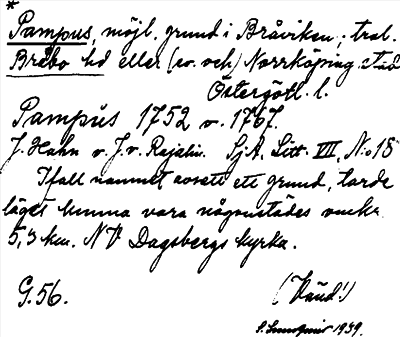 *
Pampus, möjl. grund i Bråviken; trol.
Bråbo hd eller (ev. och) Norrköping stad
Östergötl. l.
Pampus 1752 o. 1767.
J. Hahn o. J. v. Rajalin. SjA, Litt. VII, N:o 18
Ifall namnet avsett ett grund, torde
läget kunna vara någonstädes omkr.
5,3 km. NV Dagsbergs kyrka.
G. 56. (Känd!)
1939.